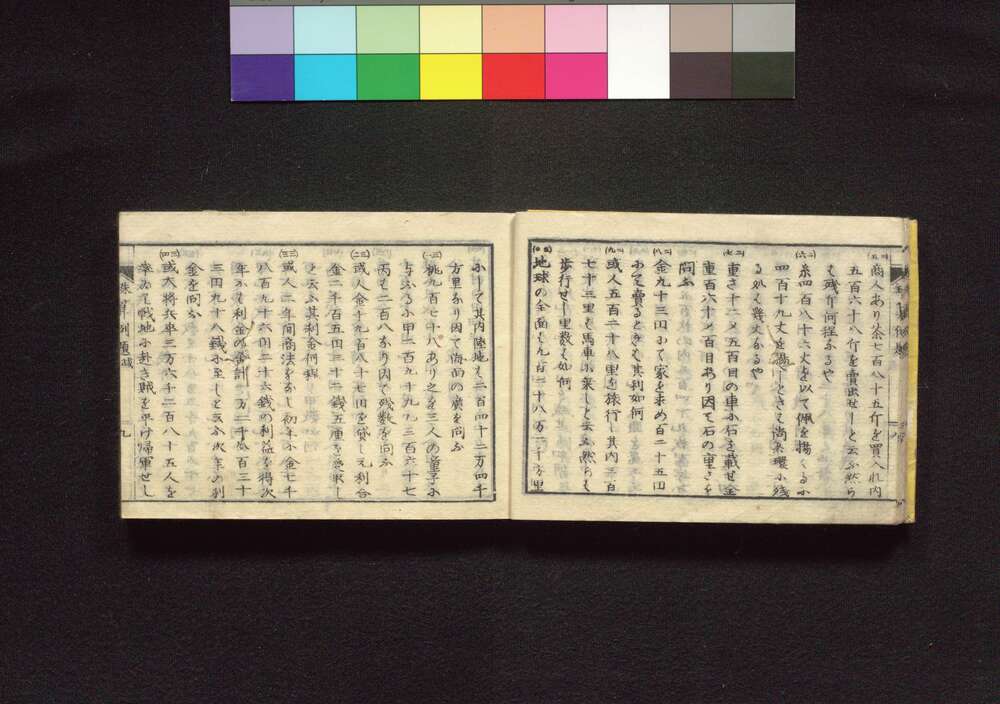 (二五)
商人あり茶七百八十五斤を買入れ内
五百六十八斤を賣出せしと云ふ然ら
ば残斤何程なるや
(二六)
糸四百八十六丈を以て佩を揚くるに
四百十九丈を
るや
(二七)
重さ十二〆五百目の車に石を載せ全
重百六十〆百目あり因て石の重さを
問ふ
(二八)
金九十三円にて家を求め百二十五円
にて賣るときは其利如何
(二九)
或人五百二十八里を旅行し其内三百
七十三里は馬車に乗しと云ふ然らば
歩行せし里数は如何
(三十)
地球の全面は九百二十八万二千方里
にして其内陸地は二百四十二万四千
方里なり因て海面の廣を問ふ
(三一)
桃九百七十八あり之を三人の童子に
与ふるに甲に二百九十九乙に三百六十七
丙に二百八なり因て残数を問ふ
(三二)
或人金千九百八十七円を貸し元利合
金二千百五円三十二銭五厘を
と云ふ其利金何程
(三三)
或人二年間商法をなし初年に金七千
八百九十六円二十六銭の利益を得次
年にも利金の合計一万二千
三円九十八銭に至しと云ふ次年の利
金を問ふ
(三四)
或大将兵卒三万六千二百八十五人を
率ゐて戦地に赴き賊を平け帰軍せし
九